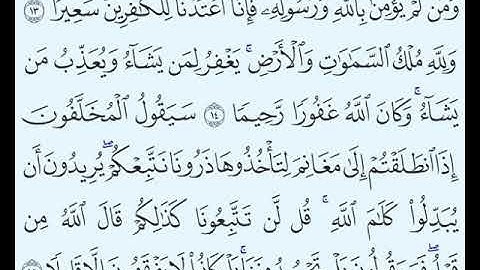 وَمَن لَّمْ يُؤْمِنۢ بِٱللَّهِ وَرَسُولِهِۦ فَإِنَّآ أَعْتَدْنَا لِلْكَـٰفِرِينَ سَعِيرًا ١٣
وَلِلَّهِ مُلْكُ ٱلسَّمَـٰوَٰتِ وَٱلْأَرْضِ ۚ يَغْفِرُ لِمَن يَشَآءُ وَيُعَذِّبُ مَن
يَشَآءُ ۚ وَكَانَ ٱللَّهُ غَفُورًا رَّحِيمًا ١٤ سَيَقُولُ ٱلْمُخَلَّفُونَ
إِذَا ٱنطَلَقْتُمْ إِلَىٰ مَغَانِمَ لِتَأْخُذُوهَا ذَرُونَا نَتَّبِعْكُمْ ۖ يُرِيدُونَ أَن
يُبَدِّلُوا۟ كَلَـٰمَ ٱللَّهِ ۚ قُل لَّن تَتَّبِعُونَا كَذَٰلِكُمْ قَالَ ٱللَّهُ مِن
قَبْلُ ۖ فَسَيَقُولُونَ بَلْ تَحْسُدُونَنَا ۚ بَلْ كَانُوا۟ لَا يَفْقَهُونَ إِلَّا قَلِيلًا